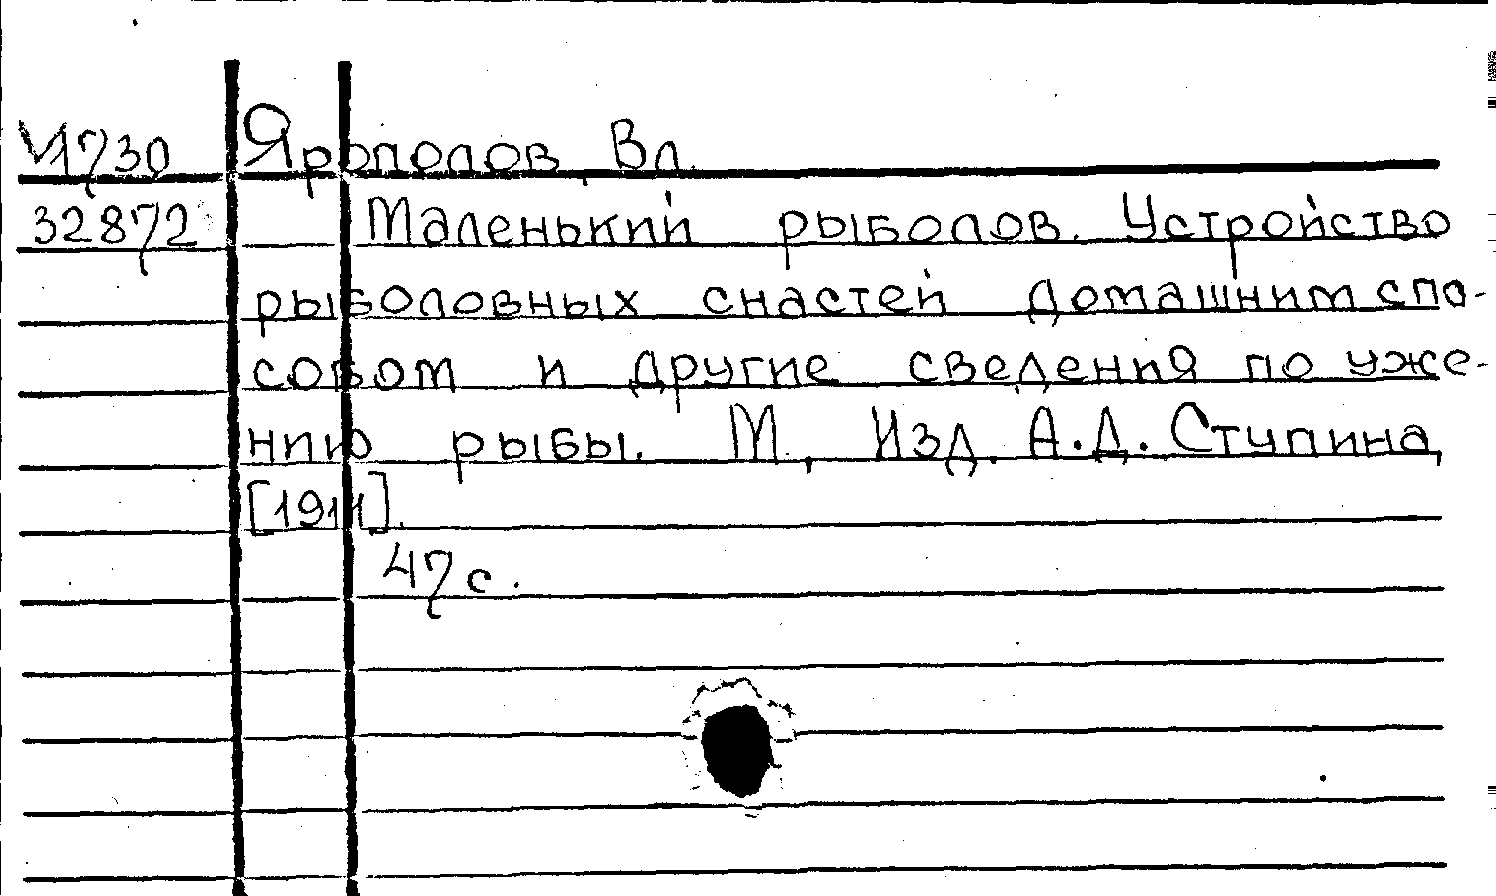 И730 Ярополов, Вл.
32872 Маленький рыболов. Устройство
рыболовных снастей домашним спо-
собом и другие сведения по уже-
нию рыбы. М., Изд. А.Д. Ступина,
[1911].
47 с.